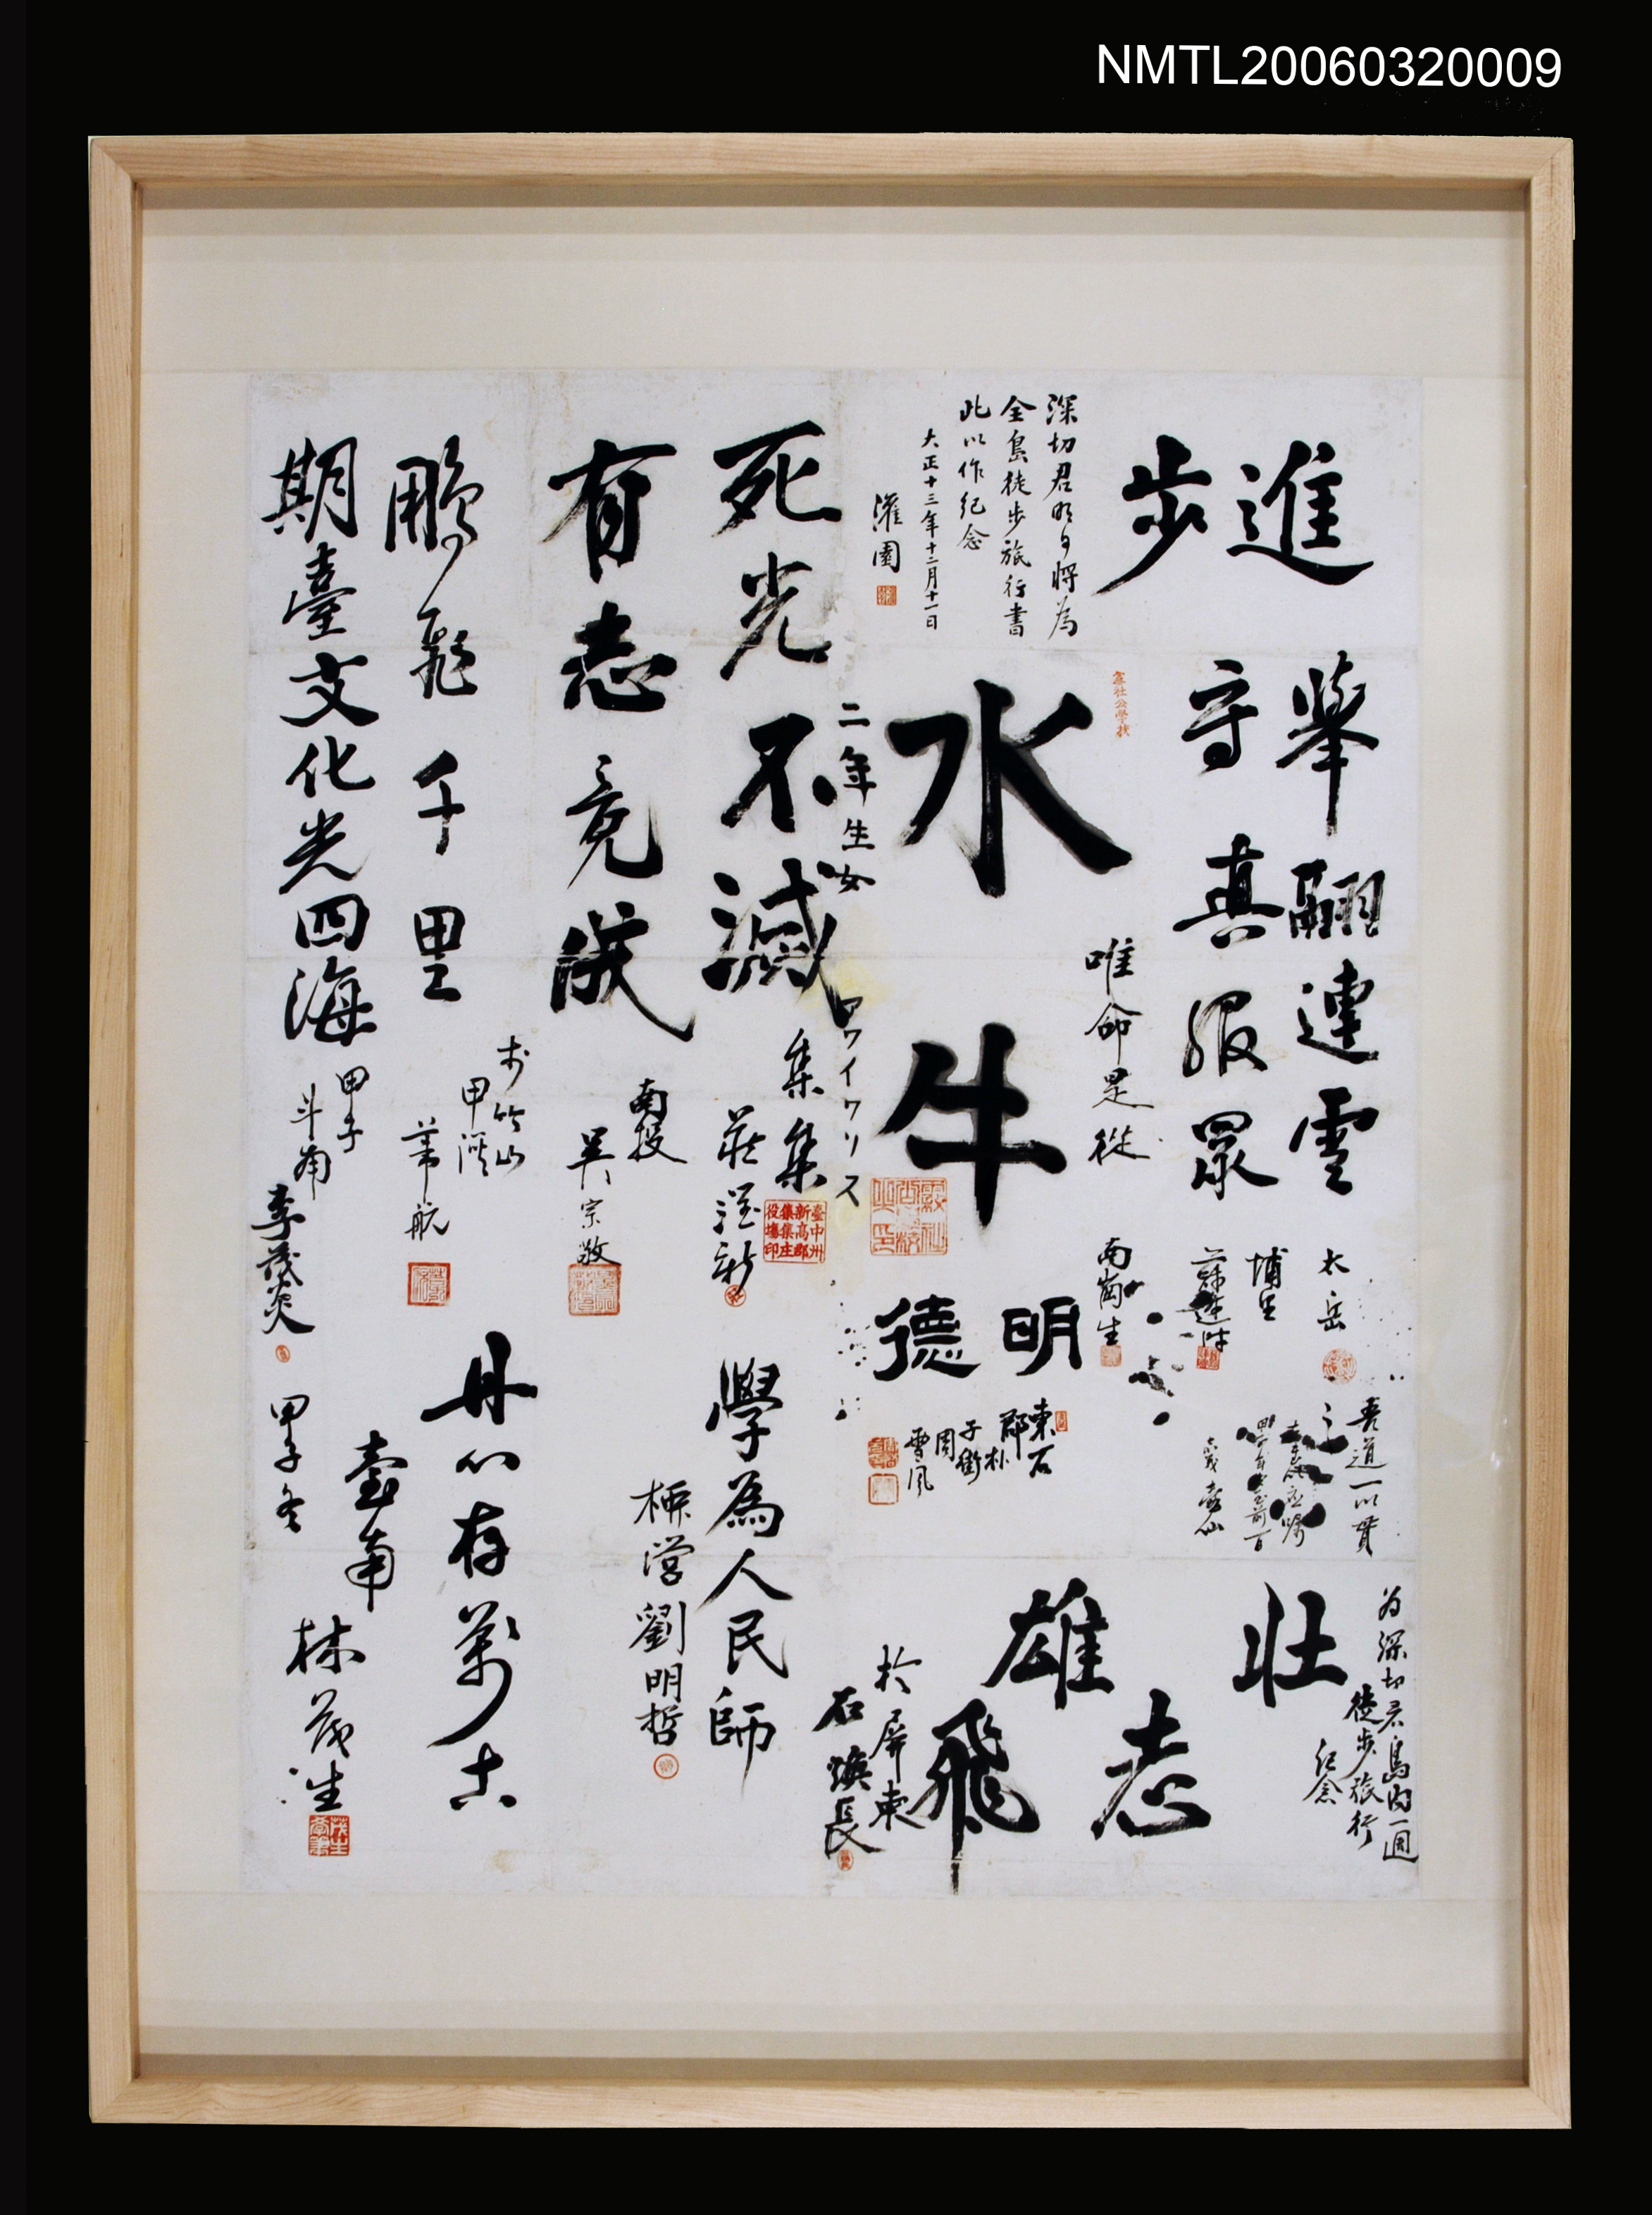 NMTL20060320009
進步
深切君明日將為
全島徒步旅行書
此以作紀念
大正十三年十二月十一日
灌園
舉翮連雲
太岳
守真服眾
埔里
霧社公學校
唯命是從
南崗生
水牛
二年生女
アワイワリス
死光不滅
集集
莊
臺中州
新高郡
集集庄
役場印
有志竟成
南投
吳宗敬
鵬飛千里
於竹山
甲
葦航
期臺文化光四海
甲子
斗南
李茂炎
明德
東石
郡朴
子街
周
雪風
吾道一以貫之
壽仙
為深切君島內一週
徒步旅行
紀念
壯志雄飛
於屏東
石煥長
學為人民師
柳營劉明哲
丹心存萬古
臺南
林茂生
甲子冬